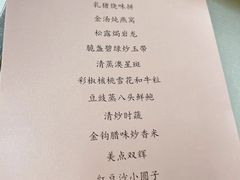 乳猪烧味拼
金汤炖燕窝
松露焗岩龙
脆盏碧绿炒玉带
清蒸澳星斑
彩椒核桃雪花和牛粒
豆豉蒸八头鲜鲍
清炒时蔬
金钩腊味炒香米
美点双辉
红豆沙小圆子